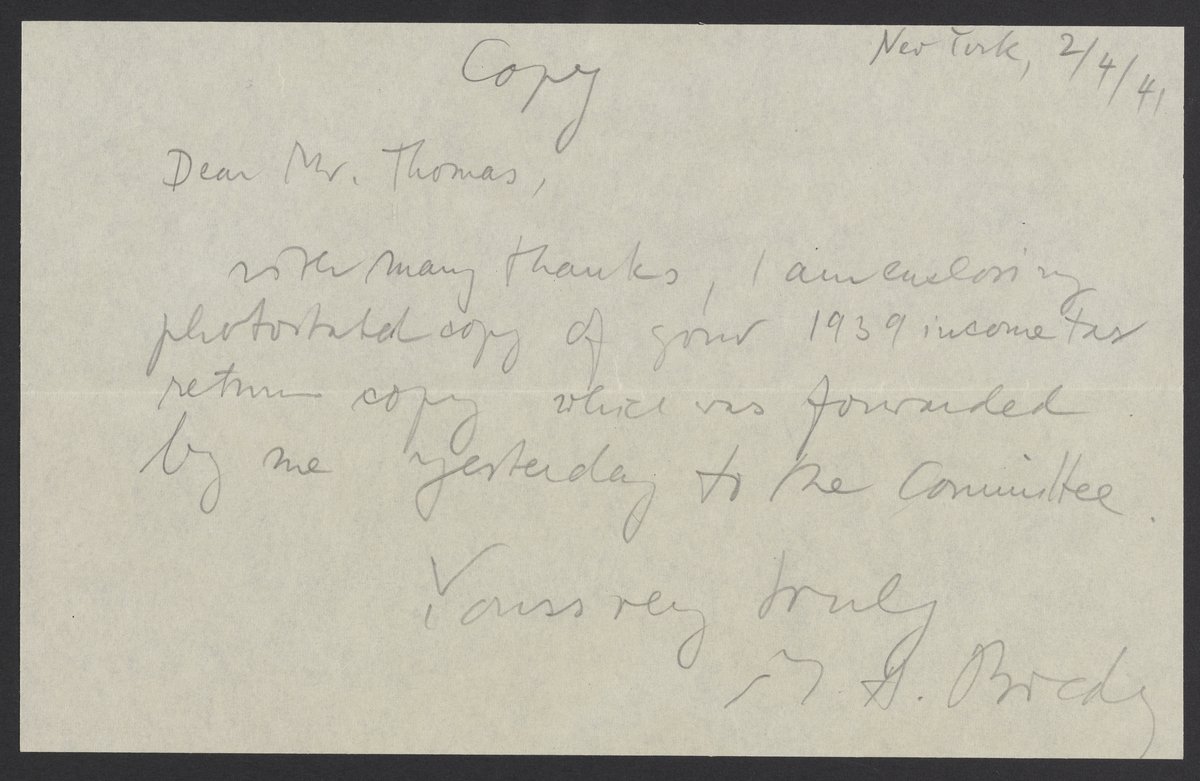 Copy
New York, 2/4/41
Dear Mr. Thomas,
with many thanks, I am enclosing
photostated copy of your 1939 income tax
return copy which was forwarded
by me yesterday to the Committee.
Yours very truly
D.